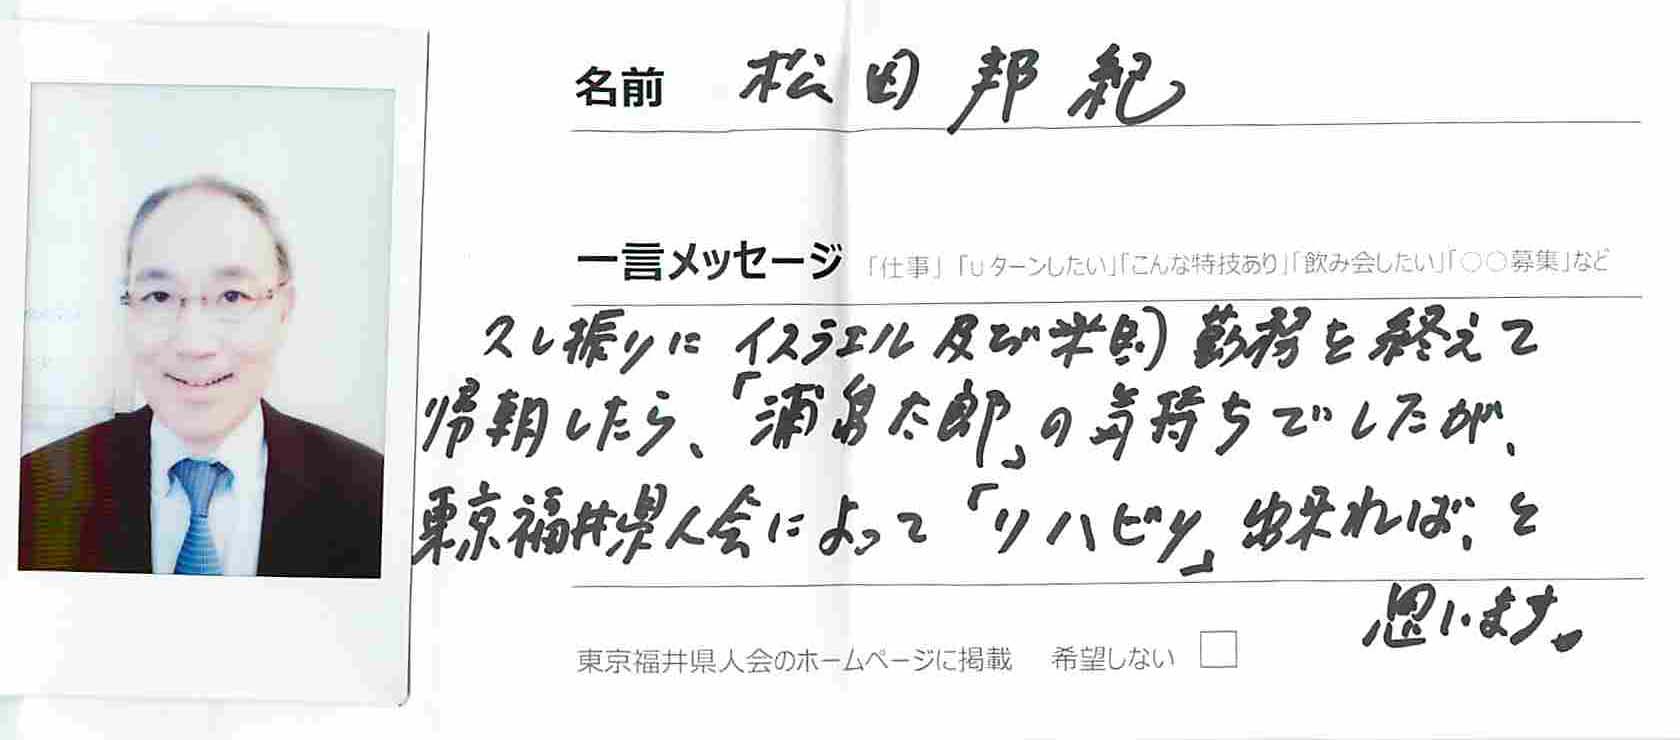 名前 松田邦紀
一言メッセージ 「仕事」「Uターンしたい」「こんな特技あり」「飲み会したい」「○○募集」など
久し振りに イスラエル及び米国勤務を終えて
帰朝したら、「浦島太郎」の気持ちでしたが、
東京福井県人会によって「リハビリ」出来れば、と
思います。
東京福井県人会のホームページに掲載 希望しない □